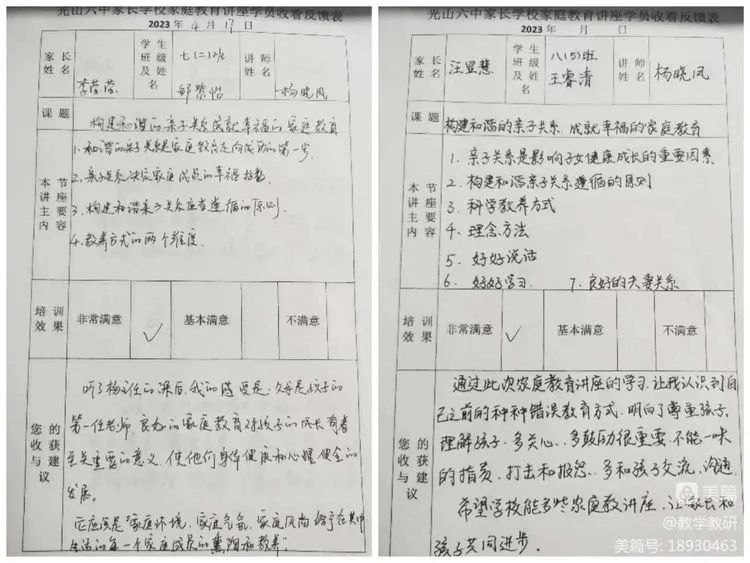 光山六中家长学校家庭教育讲座学员收看反馈表
2023 年 4 月 17 日
家长姓名
李莹莹
学生班级及姓名
七(二)班
邹紫怡
讲师姓名
杨晓凤
课题
构建和谐的亲子关系成就幸福的家庭教育
本节讲座主要内容
1.和谐的亲子关系是家庭教育走向成功的第一步.
2.亲子关系决定家庭成员的幸福指数.
3.构建和谐亲子关系应当遵循的原则.
4.教养方式的两个维度.
培训效果
非常满意
✓
基本满意
不满意
您的收获与建议
听了杨主任的课后,我的感受是:父母是孩子的
第一任老师,良好的家庭教育对孩子的成长有着
至关重要的意义,使他们身体健康和心理健全的
发展。
它应该是"家庭环境、家庭气氛、家庭风尚给予在其中
生活的每一个家庭成员的熏陶和教养"
光山六中家长学校家庭教育讲座学员收看反馈表
2023 年 月 日
家长姓名
汪显慧
学生班级及姓名
八(5)班
王睿清
讲师姓名
杨晓凤
课题
构建和谐的亲子关系 成就幸福的家庭教育
本节讲座主要内容
1. 亲子关系是影响子女健康成长的重要因素
2. 构建和谐亲子关系遵循的原则
3. 科学教养方式
4. 理念方法
5. 好好说话
6. 好好学习. 7. 良好的夫妻关系
培训效果
非常满意
✓
基本满意
不满意
您的收获与建议
通过此次家庭教育讲座的学习,让我认识到自
己之前的种种错误教育方式.明白了尊重孩子,
理解孩子.多关心、多鼓励很重要.不能一味
的指责,打击和报怨、多和孩子交流,沟通.
希望学校能多些家庭教讲座,让家长和
孩子共同进步.
美篇
@教学教研
美篇号: 18930463